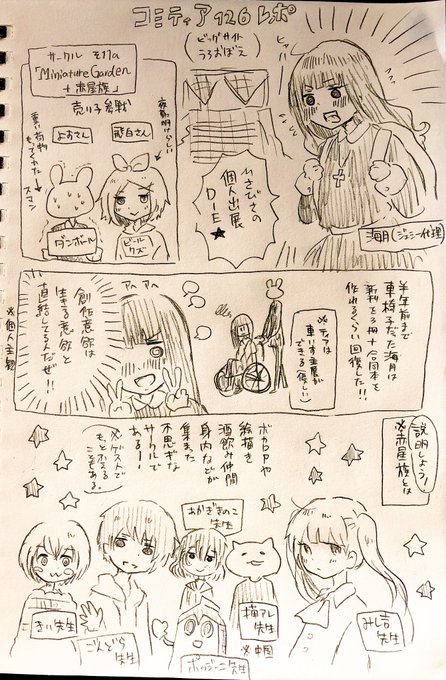 コミティア126レポ
ビッグサイト
(うろおぼえ)
ヒャハー
ひさびさの
個人出展
DIE★
海月(ジェシー代理)
サークル そ17a
「Miniature Garden
+赤屋族」
売り子参戦
夜勤明けらしい
重い荷物
もってくれた
スマン
よおさん
ダンボール
ビールクズ
半年前まで
車椅子だった海月は
新刊を3冊+合同本を
作れるくらい回復した!!!
※ティアは
車いす主展が
できる(優しい)
アヘアヘ
創作意欲は
生きる意欲と
直結してるんだぜ!!
※個人主観
説明しよう!
※赤屋族とは
ボカロPや
絵描き
酒飲み仲間
身内などが
集まった
不思議な
サークルで
ある!
(※ゲストで
もっとふえる
こともある。)
きい先生
ごんどら
先生
あかぎきのこ
先生
ポッジーニ先生
猫アレ
先生
みし吉
先生